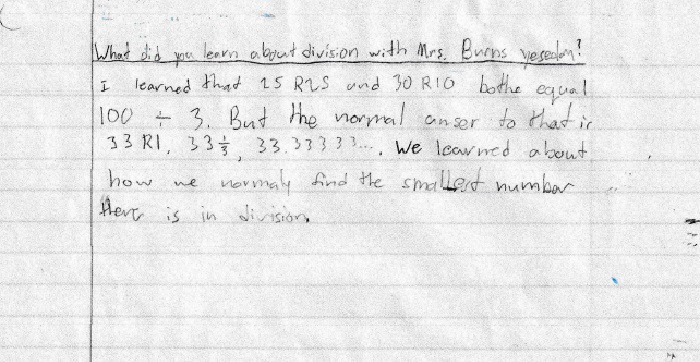 What did you learn about division with Mrs. Burns yeseday?
I learned that 25 R25 and 30 R10 bothe equal
100 ÷ 3. But the normal anser to that is
33 R1, 33 1/3, 33.33333.... We learned about
how we normaly find the smallest number
there is in division.